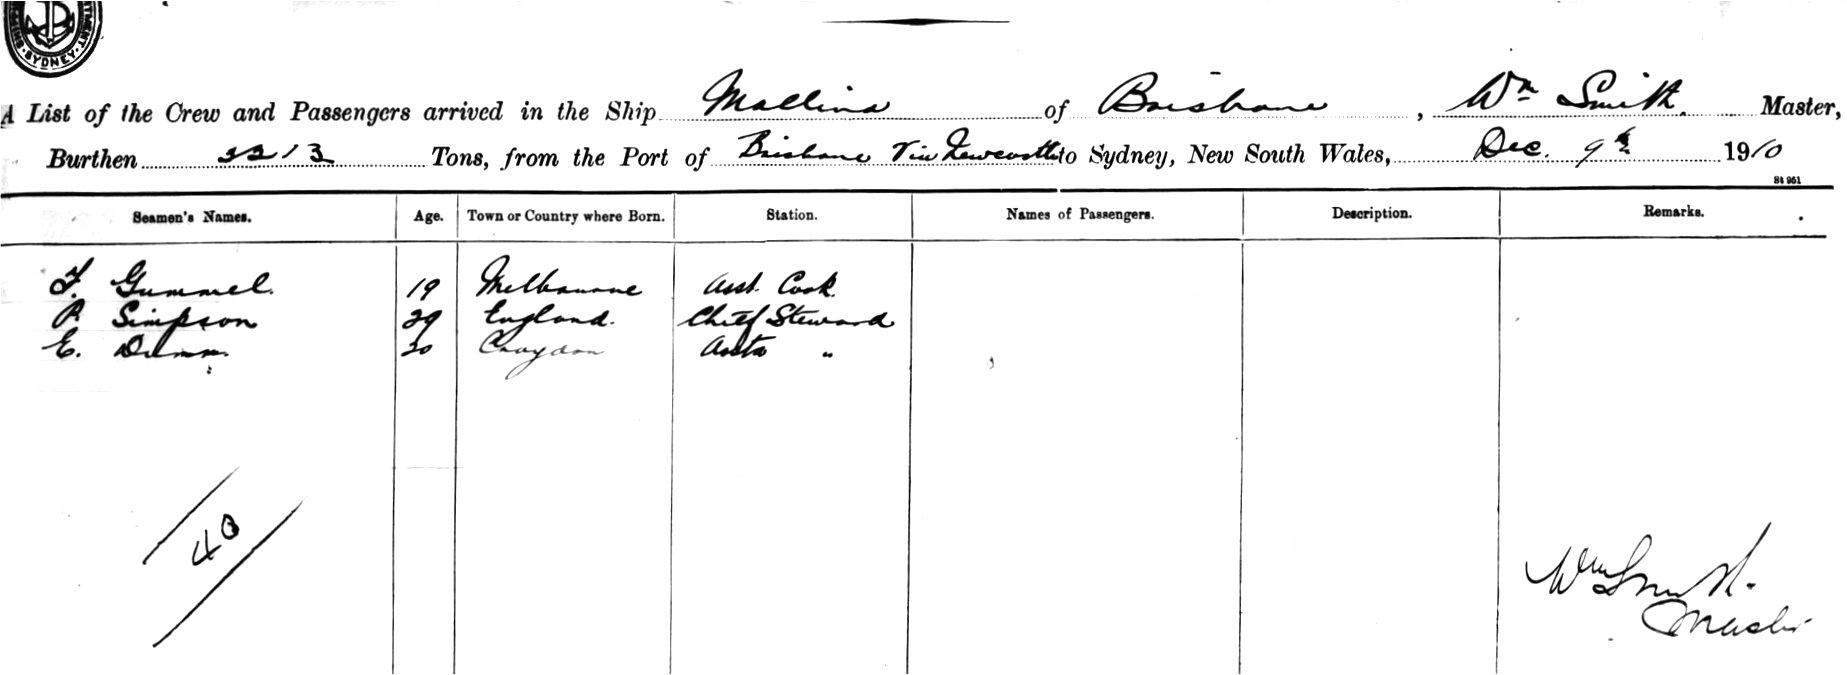 SYDNEY
A List of the Crew and Passengers arrived in the Ship Mallina of Brisbane, Wm Smith. Master,
Burthen 3213 Tons, from the Port of Brisbane Via Newcastle to Sydney, New South Wales, Dec. 9th 1910
St 961
Seamen's Names. Age. Town or Country where Born. Station. Names of Passengers. Description. Remarks.
F. Gummel. 19 Melbourne Asst. Cook.
P. Simpson 29 England. Chief Steward
E. Dunn. 20 Croydon "
40
Wm Smith.
Master